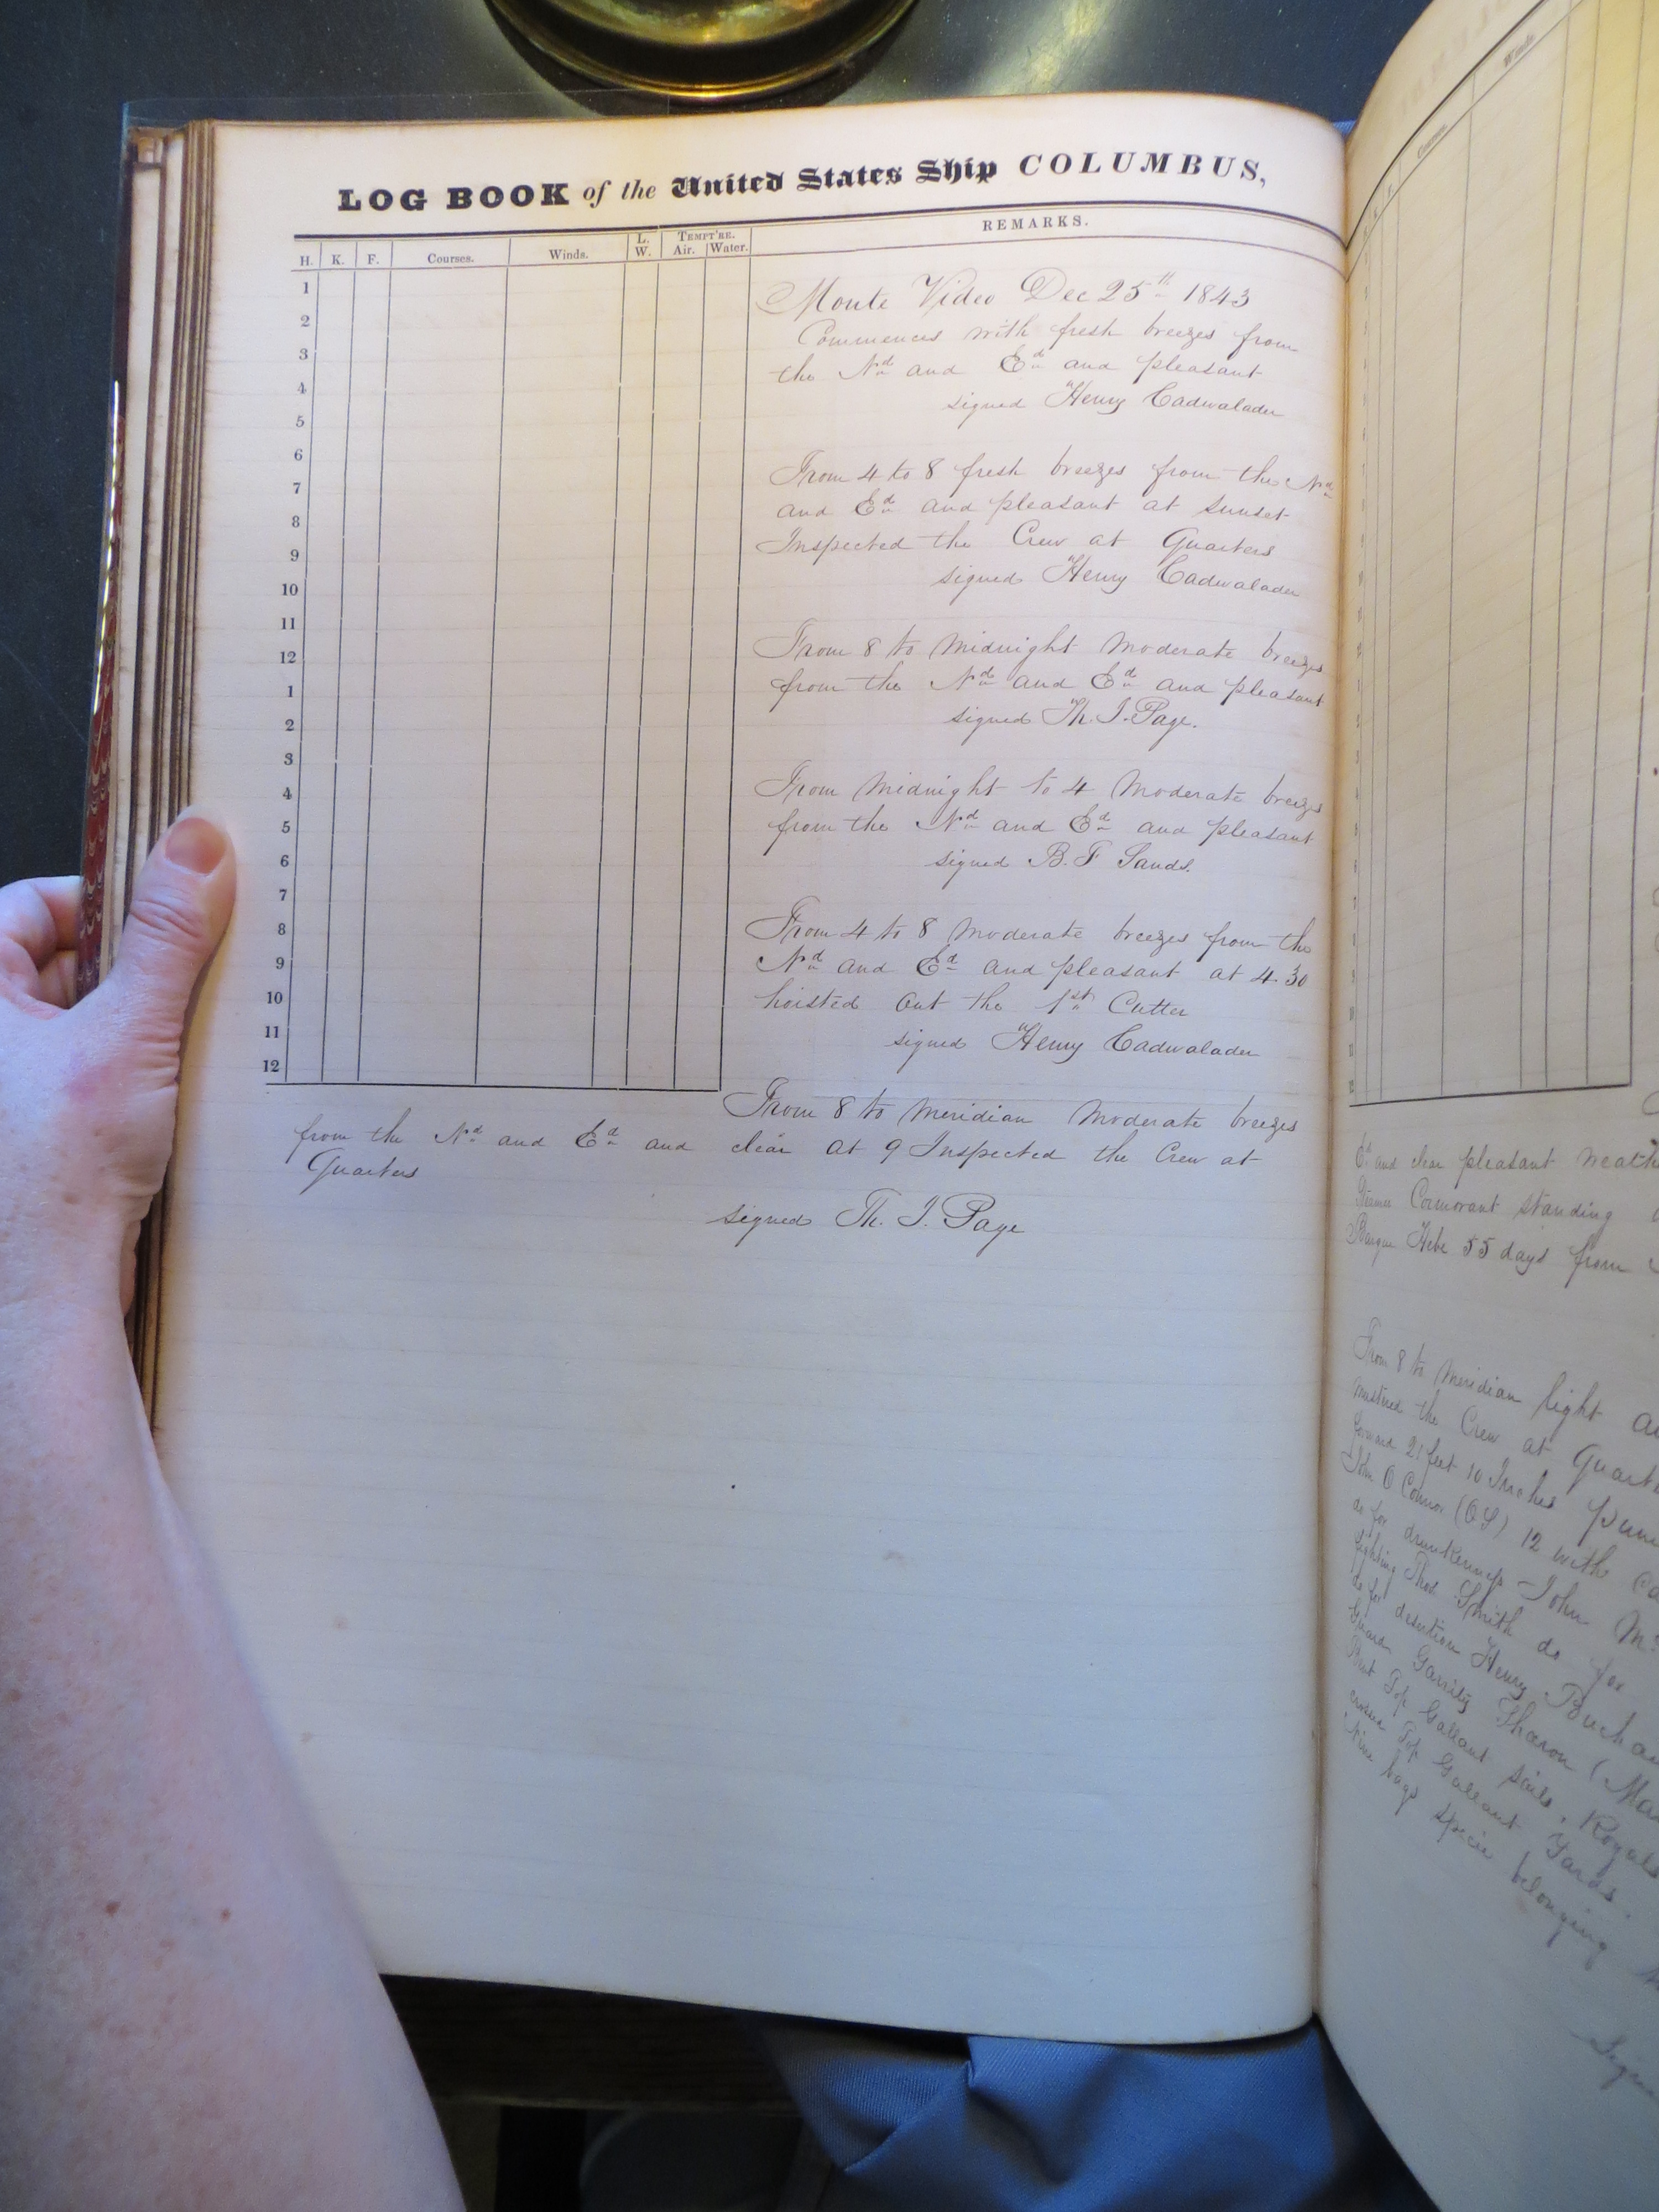 LOG BOOK of the United States Ship COLUMBUS,
H. K. F. Courses. Winds. L. W. TEMPT'RE. Air. Water. REMARKS.
1
2
3
4
5
6
7
8
9
10
11
12
1
2
3
4
5
6
7
8
9
10
11
12
Monte Video Dec 25th 1843
Commences with fresh breezes from
the Nd and Ed and pleasant
signed Henry Cadwalader
From 4 to 8 fresh breezes from the Nd
and Ed and pleasant at sunset
Inspected the Crew at Quarters
signed Henry Cadwalader
From 8 to Midnight Moderate breezes
from the Nd and Ed and pleasant
signed Th. J. Page.
From Midnight to 4 Moderate breezes
from the Nd and Ed and pleasant
signed B. F Sands.
From 4 to 8 Moderate breezes from the
Nd and Ed and pleasant at 4.30
hoisted out the 1st Cutter
signed Henry Cadwalader
From 8 to Meridian Moderate breezes
from the Nd and Ed and clear at 9 Inspected the Crew at
Quarters
signed Th. J. Page
Courses. Winds.
Ed and clear pleasant
Steamer Cormorant standing
Barque Hebe 55 days from
From 8 to Meridian light
mustered the Crew at
forward 21 feet 10 Inches
John O Connor (OS) 12 with
do for drunkenness John
fighting Thos Smith do for
do for desertion Henry
Garrity Sharon
Bent Top Gallant sails, Royals
crossed Top Gallant Yards
Nine bags specie belonging